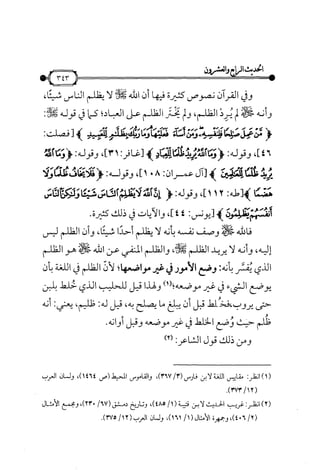 الحديث الرابع والعشرون
٣٤٣
وفي القرآن نصوص كثيرة فيها أن الله ﷻ لا يظلم الناس شيئًا،
وأنه ﷻ لم يُرِدْ الظلم، ولم يَخْتَر الظلم على العباد؛ كما في قوله ﷻ:
﴿مَّنْ عَمِلَ صَالِحًا فَلِنَفْسِهِ وَمَنْ أَسَاءَ فَعَلَيْهَا وَمَا رَبُّكَ بِظَلَّامٍ لِّلْعَبِيدِ﴾ [فصلت:
٤٦]، وقوله: ﴿وَمَا اللَّهُ يُرِيدُ ظُلْمًا لِّلْعِبَادِ﴾ [غافر: ٣١]، وقوله: ﴿وَمَا اللَّهُ
يُرِيدُ ظُلْمًا لِّلْعَالَمِينَ﴾ [آل عمران: ١٠٨]، وقوله: ﴿فَلَا يَخَافُ ظُلْمًا وَلَا
هَضْمًا﴾ [طه: ١١٢]، وقوله: ﴿إِنَّ اللَّهَ لَا يَظْلِمُ النَّاسَ شَيْئًا وَلَكِنَّ النَّاسَ
أَنفُسَهُمْ يَظْلِمُونَ﴾ [يونس: ٤٤]، والآيات في ذلك كثيرة.
فالله ﷻ وصف نفسه بأنه لا يظلم أحدًا شيئًا، وأن الظلم ليس
إليه، وأنه لا يريد الظلم ﷻ، والظلم المنفي عن الله ﷻ هو الظلم
الذي يُفسَّر بأنه: وضع الأمور في غير مواضعها؛ لأنّ الظلم في اللغة بأن
يوضع الشيء في غير موضعه؛(١) ولهذا قيل للحليب الذي خُلط بلبن
حتى يروب، فخُلط قبل أن يبلغ ما يصلح به، قيل له: ظليم، يعني: أنه
ظُلم حيث وُضع الخلط في غير موضعه وقبل أوانه.
ومن ذلك قول الشاعر: (٢)
(١) انظر: مقاييس اللغة لابن فارس (٣/ ٣٦٧)، والقاموس المحيط (ص ١٤٦٤)، ولسان العرب
(١٢/ ٣٧٣).
(٢) انظر: غريب الحديث لابن قتيبة (١/ ٤٨٥)، وتاريخ دمشق (٦٧/ ٢٣٠)، ومجمع الأمثال
(٢/ ٤٠٦)، وجمهرة الأمثال (١/ ١٦١)، ولسان العرب (١٢/ ٣٧٥).